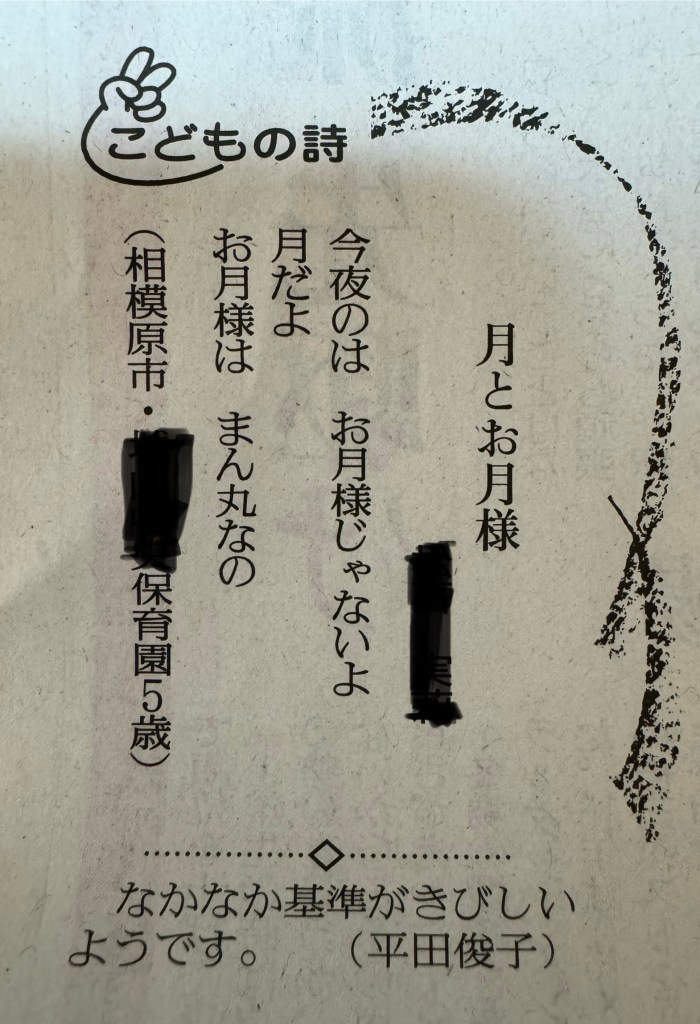 こどもの詩
月とお月様
今夜のは　お月様じゃないよ
月だよ
お月様は　まん丸なの
（相模原市・保育園５歳）
なかなか基準がきびしい
ようです。　（平田俊子）